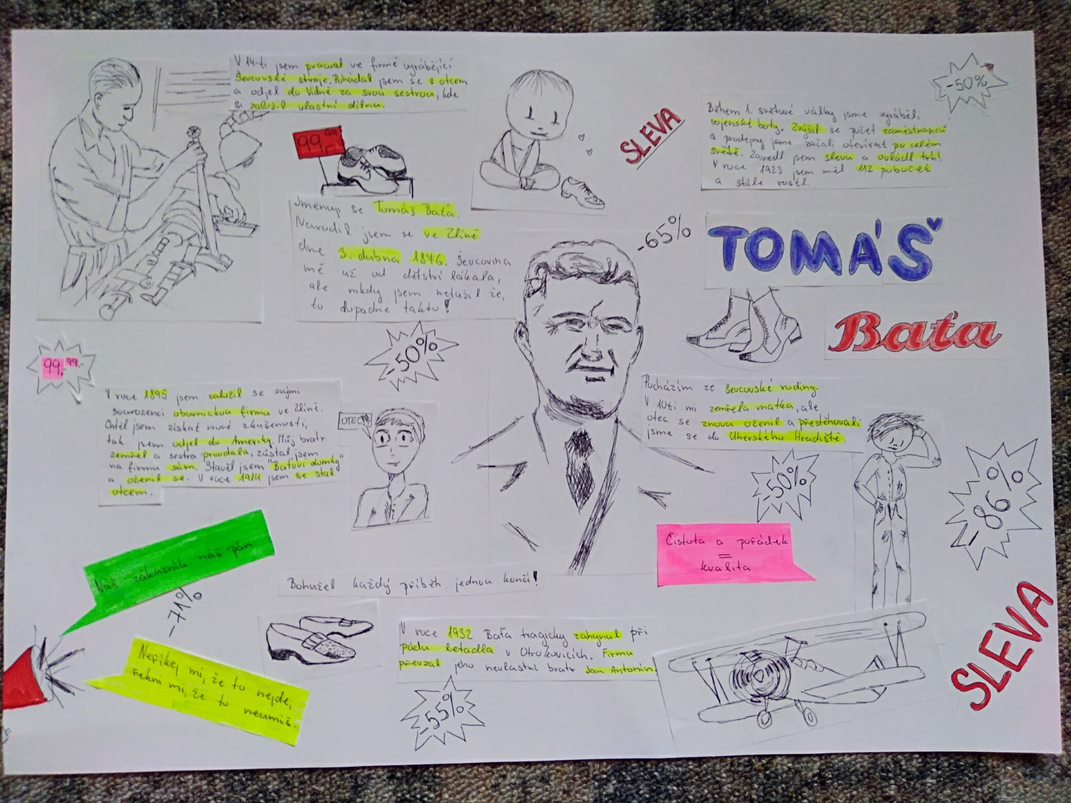 V 14-ti jsem pracoval ve firmě vyrábějící
ševcovské stroje. Pohádal jsem se s otcem
a odjel do Vídně za svou sestrou, kde
si založil vlastní dílnu.
99,99,-
SLEVA
-50%
Během 1. světové války jsme vyráběli
vojenské boty. Zvýšil se počet zaměstnanců
a prodejny jsme začali otevírat po celém
světě. Zavedl jsem slevu a ovládl trh!
V roce 1923 jsem měl 112 poboček
a stále rostl.
Jmenuji se Tomáš Baťa.
Narodil jsem se ve Zlíně
dne 3. dubna 1876. Ševcovina
mě už od dětství lákala,
ale nikdy jsem netušil že,
to dopadne takto!
-65%
TOMÁŠ
Baťa
99,99,-
-50%
V roce 1895 jsem založil se svými
sourozenci obuvnickou firmu ve Zlíně.
Chtěl jsem získat nové zkušenosti,
tak jsem odjel do Ameriky. Můj bratr
zemřel a sestra provdala, zůstal jsem
na firmu sám. Stavěl jsem "Baťovi domky"
a oženil se. V roce 1914 jsem se stal
otcem.
OTEC?
Pocházím ze ševcovské rodiny.
V 10ti mi zemřela matka, ale
otec se znovu oženil a přestěhovali
jsme se do Uherského Hradiště
-50%
-86%
Čistota a pořádek
=
kvalita
Náš zákazník náš pán
-71%
Neříkej mi, že to nejde,
řekni mi, že to neumíš.
Bohužel každý příběh jednou končí!
V roce 1932 Baťa tragicky zahynul při
pádu letadla v Otrokovicích. Firmu
převzal jeho nevlastní bratr Jan Antonín.
-55%
SLEVA